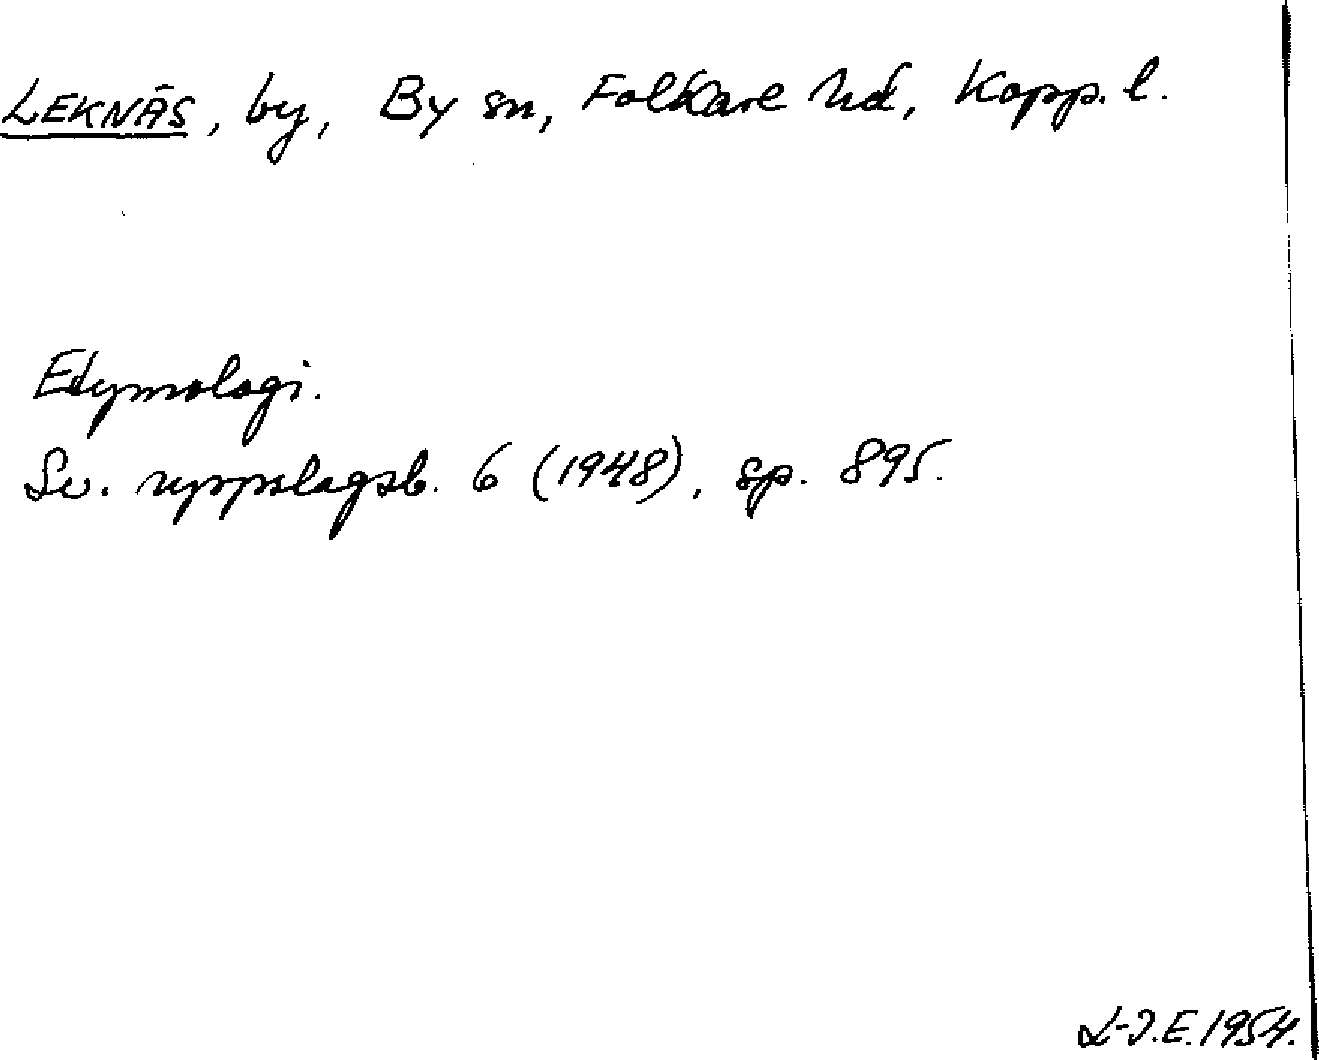 LEKNÄS, by, By sn, Folkare hd, Kopp. l.
Etymologi.
Sv. uppslagsb. 6 (1948), sp. 895.
L-I.E. 1954.